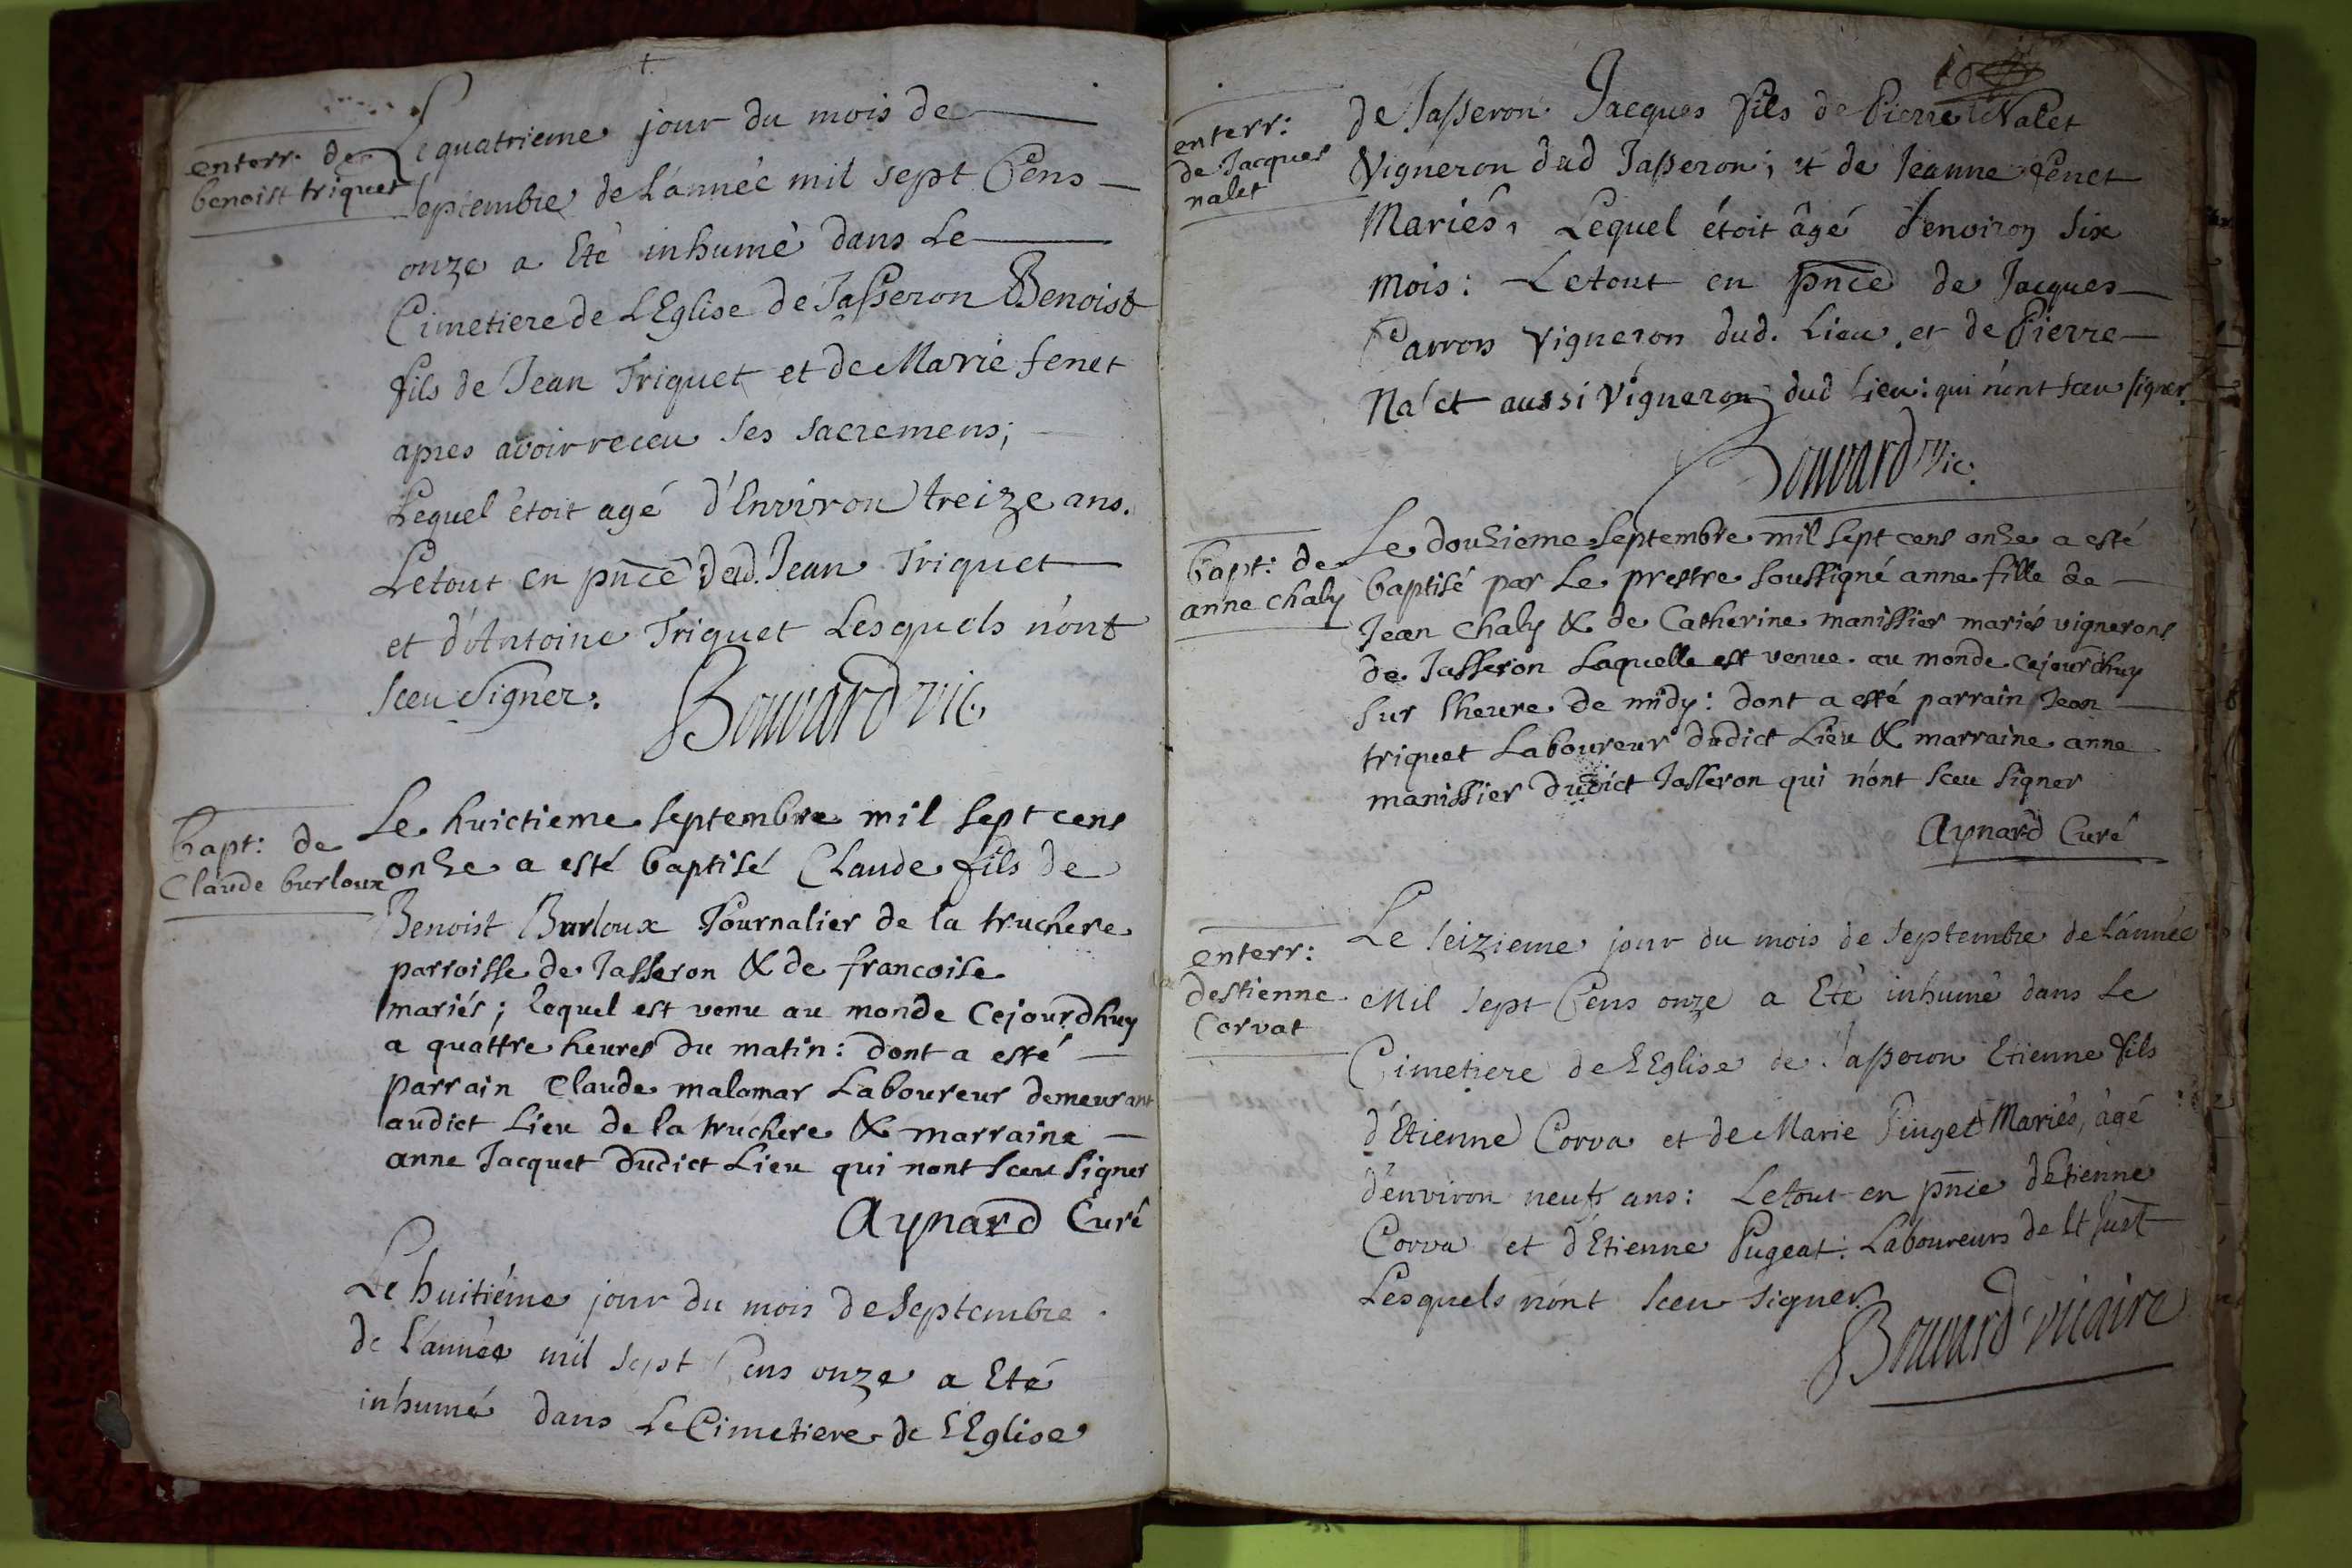 enterr. de
benoist triquet
Le quatrieme jour du mois de
Septembre de L'année mil sept Cens
onze a Eté inhumé dans Le
Cimetiere de L'Eglise de Jasseron Benoist
fils de Jean Triquet et de Marie fenet
apres avoir receu ses sacremens;
Lequel étoit agé d'Environ treize ans.
Le tout en pnce dud. Jean Triquet
et d'Antoine Triquet Lesquels n'ont
sceu signer. Bouvard vic.
bapt: de
Claude burloux
Le huictieme septembre mil sept cens
onze a esté baptisé Claude fils de
Benoist Burloux Journalier de la truchere
parroisse de Jasseron & de francoise
mariés; lequel est venu au monde cejourdhuy
a quattre heures du matin: dont a esté
parrain Claude malamar Laboureur demeurant
audict Lieu de la truchere & marraine
anne Jacquet dudict Lieu qui nont sceu signer
Aynard Curé
Le huitiéme jour du mois de Septembre
de l'année mil sept Cens onze a Eté
inhumé dans Le Cimetiere de L'Eglise
enterr:
de Jacques
nalet
de Jasseron Jacques fils de Pierre Nalet
Vigneron dud Jasseron; et de Jeanne fenet
Mariés, Lequel étoit âgé d'environ six
mois: Le tout en pnce de Jacques
Carron Vigneron dud. Lieu, et de Pierre
Nalet aussi Vigneron dud Lieu: qui n'ont sceu signer.
Bouvard vic.
bapt: de
anne chaly
Le douzieme septembre mil sept cens onze a esté
baptisé par Le prestre soussigné anne fille de
Jean chaly & de Catherine manissier mariés vignerons
de Jasseron Laquelle est venue au monde cejourdhuy
sur lheure de midy: dont a esté parrain Jean
triquet Laboureur dudict Lieu & marraine anne
manissier dudict Jasseron qui n'ont sceu signer
Aynard Curé
enterr:
destienne
Corvat
Le seizieme jour du mois de septembre de L'année
Mil sept Cens onze a Eté inhumé dans Le
Cimetiere de L'Eglise de Jasseron Etienne fils
d'Etienne Corva et de Marie Puget Mariés, âgé
d'environ neuf ans: Le tout en pnce d'Etienne
Corva et d'Etienne Pugeat: Laboureurs de St Just
Lesquels n'ont sceu signer.
Bouvard vicaire